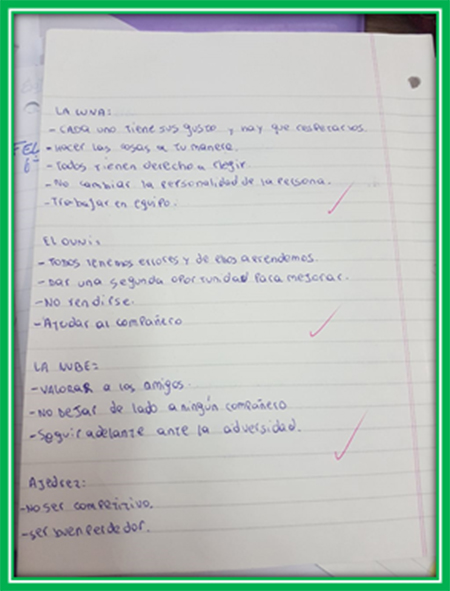 LA LUNA:
- CADA uno tiene sus gusto y hay que respetarlos.
- Hacer las cosas a tu manera.
- Todos tienen derecho a elegir.
- No cambiar la personalidad de la persona.
- Trabajar en equipo.
EL OVNI:
- TODOS tenemos errores y de ellos aprendemos.
- Dar una segunda oportunidad para mejorar.
- No rendirse.
- Ayudar al compañero
LA NUBE:
- VALORAR a los amigos.
- NO DEJAR de lado a ningún compañero
- Seguir adelante ante la adversidad.
Ajedrez:
- NO SER competitivo.
- ser buen perdedor.